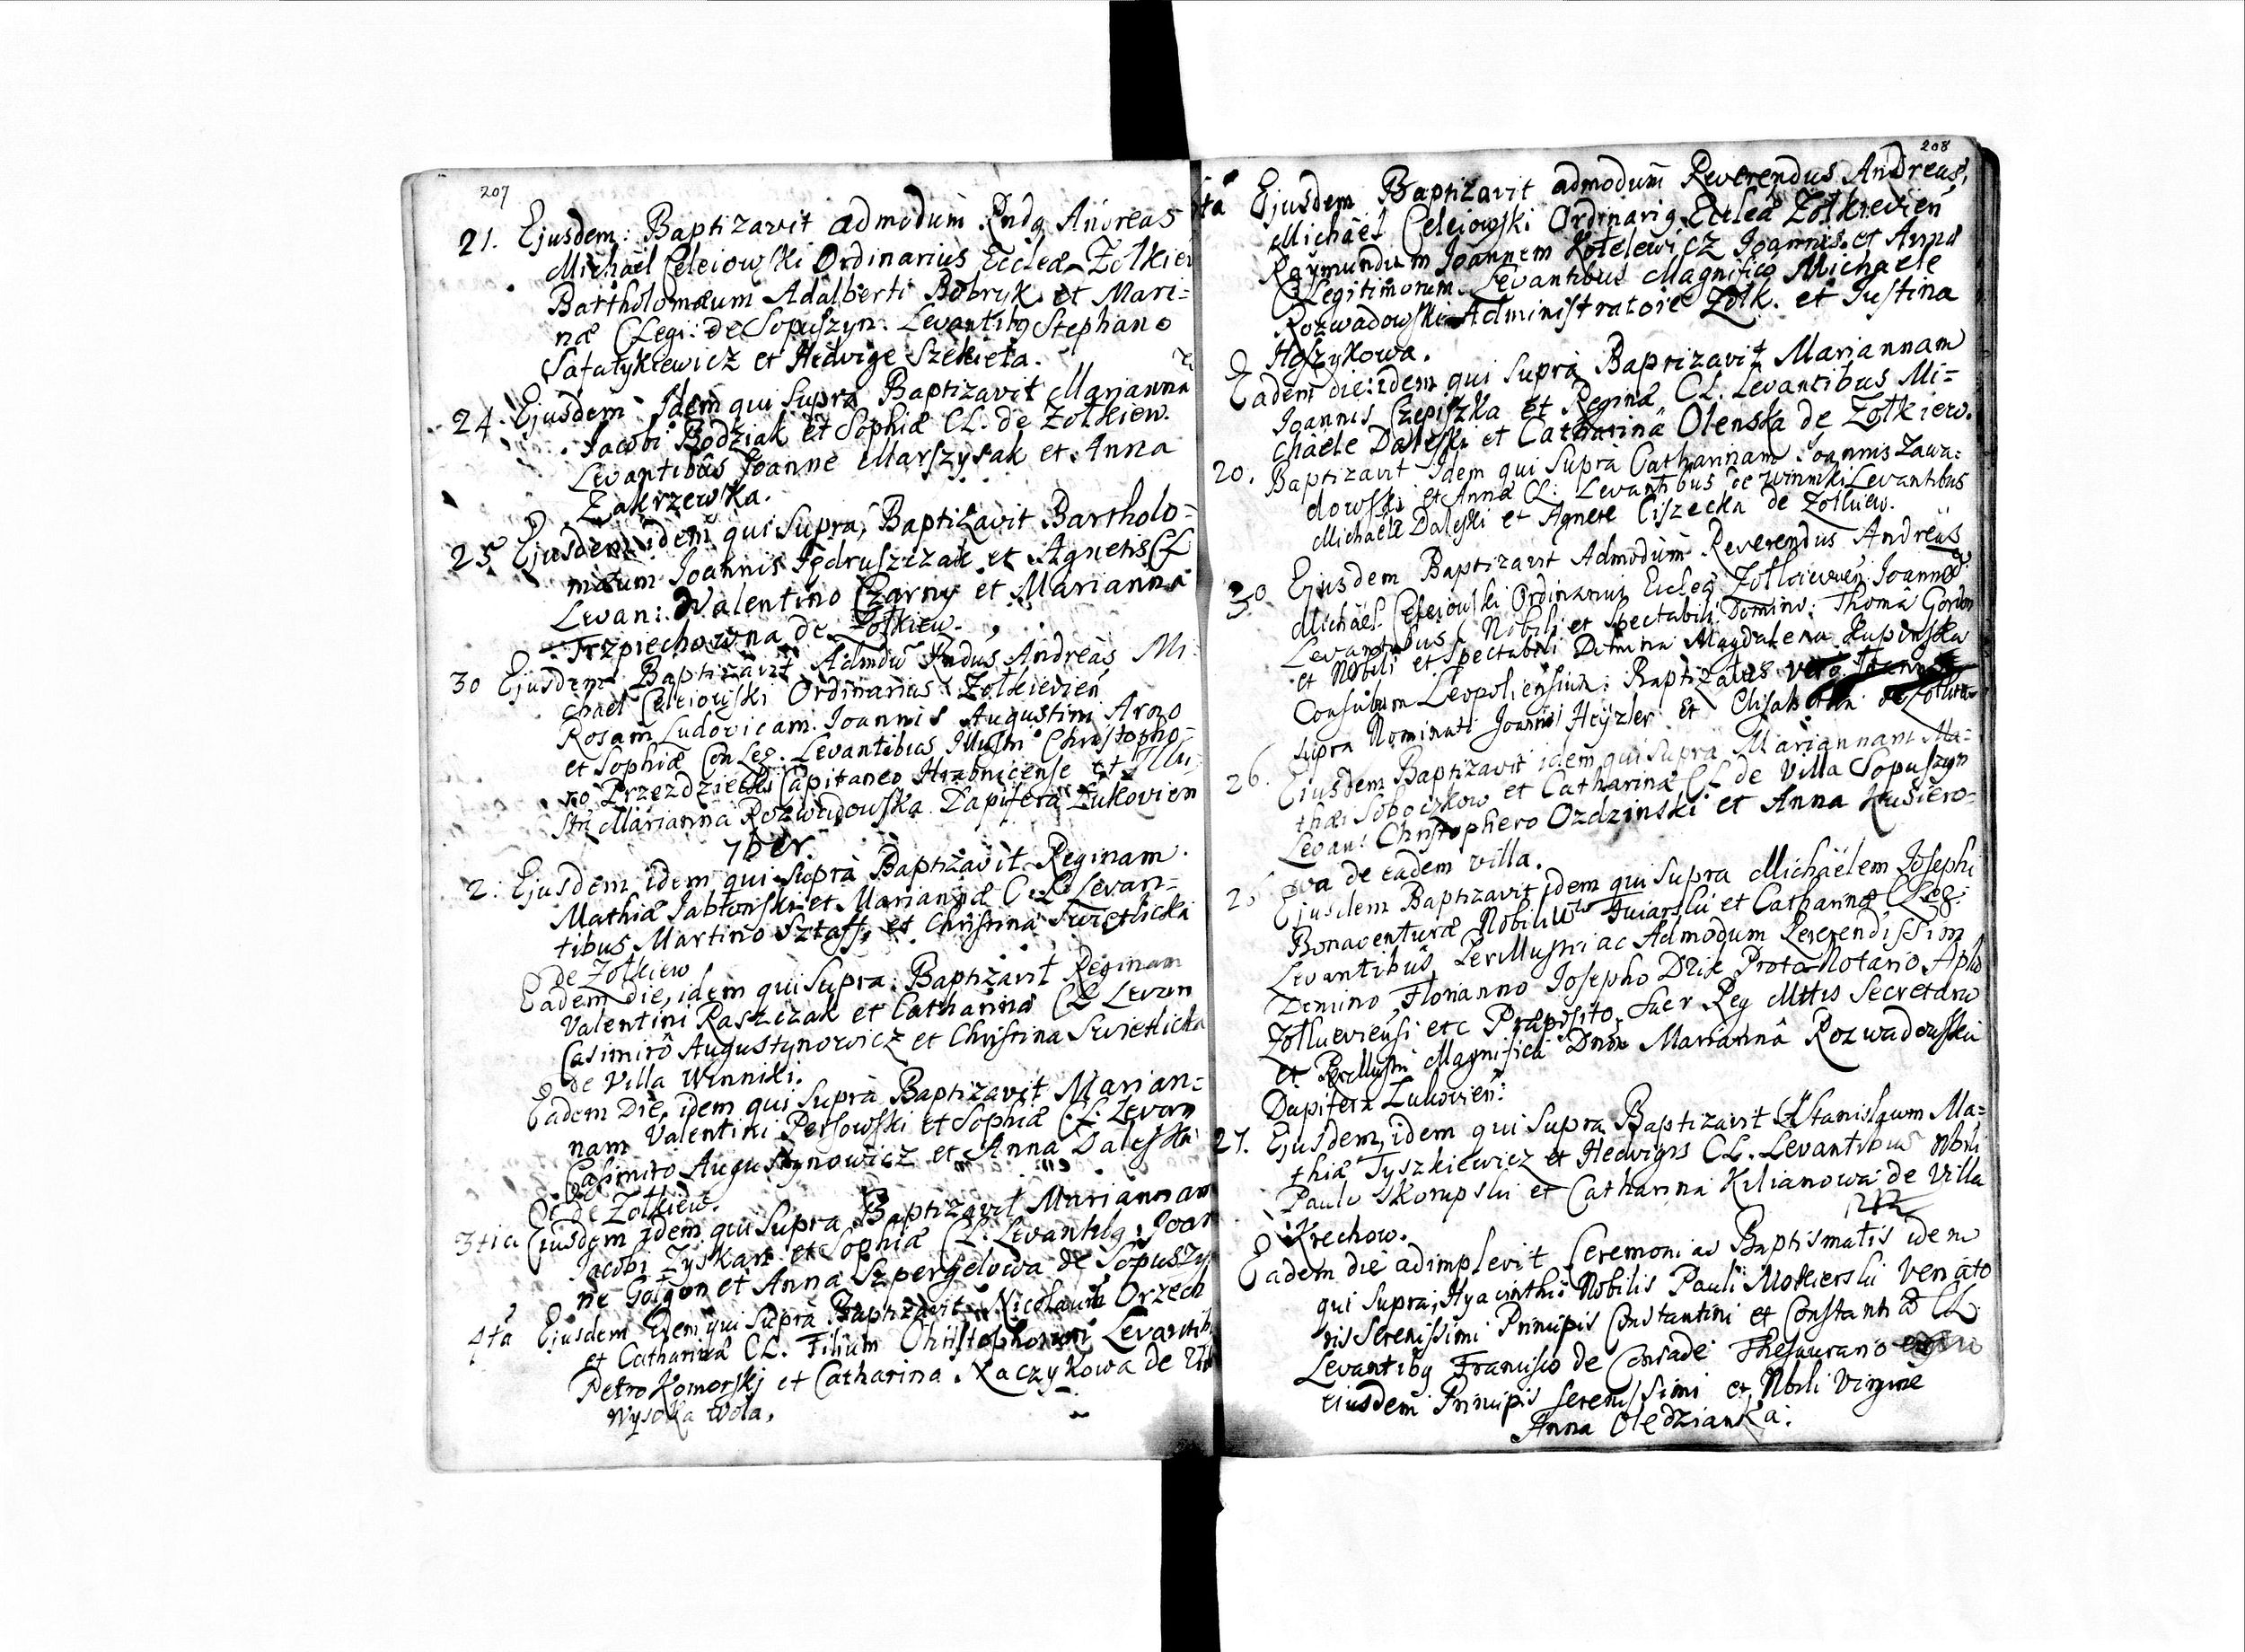 207
21. Ejusdem: Baptizavit admodum Rndq Andreas
Michael Celeiowski Ordinarius Eccleæ Zołkiev
Bartholomæum Adalberti Bobryk et Mari=
næ CLegi: de Sopuszyn. Levantibq Stephano
Safatykiewicz et Hedvige Szekieta.
24. Ejusdem Idem qui Supra Baptizavit Marianna
Jacobi Bodziak et Sophiæ CL. de Zołkiew.
Levantibus Joanne Marszysak et Anna
Zakrzewska.
25 Ejusdem idem qui Supra, Baptizavit Bartholo=
mæum Joannis Jędruszczak et Agnetis CL
Levan: Valentino Czarny et Marianna
Trzpiechowna de Zołkiew.
30 Ejusdem Baptizavit Admdu Rndus Andreas Mi=
chael Celeiowski Ordinarius Zołkievien
Rosam Ludovicam Joannis Augustini Arno
et Sophiæ Con Leg. Levantibus Illustri Christopho=
ro Przezdziecki Capitaneo et Illu=
stri Marianna Rozwadowska Dapifera Lukovien
7ber
2. Ejusdem idem qui Supra Baptizavit Reginam
Mathiæ Jabłonski et Mariannæ C.L. Levan=
tibus Martino Sztaff, et Christina Swietlicka
de Zołkiew
Eadem die, idem qui Supra: Baptizavit Reginam
Valentini Raszczak et Catharinæ CL Levan
Casimiro Augustynowicz et Christina Swietlicka
de Villa Winniki.
Eadem Die idem qui Supra Baptizavit Marian=
nam Valentini Persowski et Sophiæ C.L. Levan
Casimiro Augustynowicz et Anna Daleska
de Zołkiew.
3tia Ejusdem idem qui Supra Baptizavit Mariannam
Jacobi Zyskar et Sophiæ CL. Levantibq: Joan
ne Goigon et Anna Szpergelowa de Sopuszy
4ta Ejusdem Idem qui Supra Baptizavit Nicolaum Orzech
et Catharinæ CL. Filium Christophorum Levantib
Petro Komorski et Catharina Kaczykowa de
Wysoka Wola.
208
Ejusdem Baptizavit admodum Reverendus Andreas,
Michael Celeiowski Ordinariq Eccleæ Zołkievien
Raymundum Joannem Kotelewicz Joannis et Annæ
CLegitimorum Levantibus Magnifico Michaele
Rozwadowski Administratore Zołk. et Justina
Hoszykowa.
Eadem die: idem qui Supra Baptizavit Mariannam
Joannis Czepiszka et Reginæ CL. Levantibus Mi=
chaele Daleski et Catharina Olenska de Zołkiew.
20. Baptizavit Idem qui Supra Catharinam Joannis Zawa=
dowski et Annæ CL: Levantibus de Winniki Levantibus
Michaele Daleski et Agnete Ciszecka de Zołkiew.
30 Ejusdem Baptizavit Admodum Reverendus Andreas
Michael Celeiowski Ordinarius Eccleæ Zołkievien Joannes
Levantibus Nobili et Spectabili Domino: Thoma Gordon
et Nobili et Spectabili Domina Magdalena Rupinska
Consulum Leopoliensium: Baptizatus vero
supra Nominati Joannis Heyzler et Elisabethæ de
26. Ejusdem Baptizavit idem qui Supra Mariannam Ma=
thæi Soboczkow et Catharinæ CL de Villa Sopuszyn
Levan: Christophero Ozdzinski et Anna Kusiero=
wa de eadem villa.
Ejusdem Baptizavit idem qui Supra Michaëlem Josephi
Bonaventuræ Nobiliu et Catharinæ CLeg:
Levantibus Perillustri ac Admodum Reverendissim
Domino Florianno Josepho Proto Notario Aplo
Zołkieviensi etc Præposito, Sacr Reg Mttis Secretario
et Perillustri Magnifica Dna Marianna Rozwadowska
Dapifera Lukovien:
27. Ejusdem, idem qui Supra Baptizavit Stanislaum Ma=
thiæ Tyszkiewicz et Hedvigis CL. Levantibus Nbili
Paulo Skorupski et Catharina Kilianowa de Villa
Krechow.
Eadem die adimplevit Ceremonias Baptismatis idem
qui Supra; Hyacinthi Nobilis Pauli Mokierski Venato
ris Serenissimi Principis Constantini et Constantiæ CL
Levantibq Francisco de Thesaurario
ejusdem Principis Serenissimi et Nbili Virgine
Anna Oledzianska: